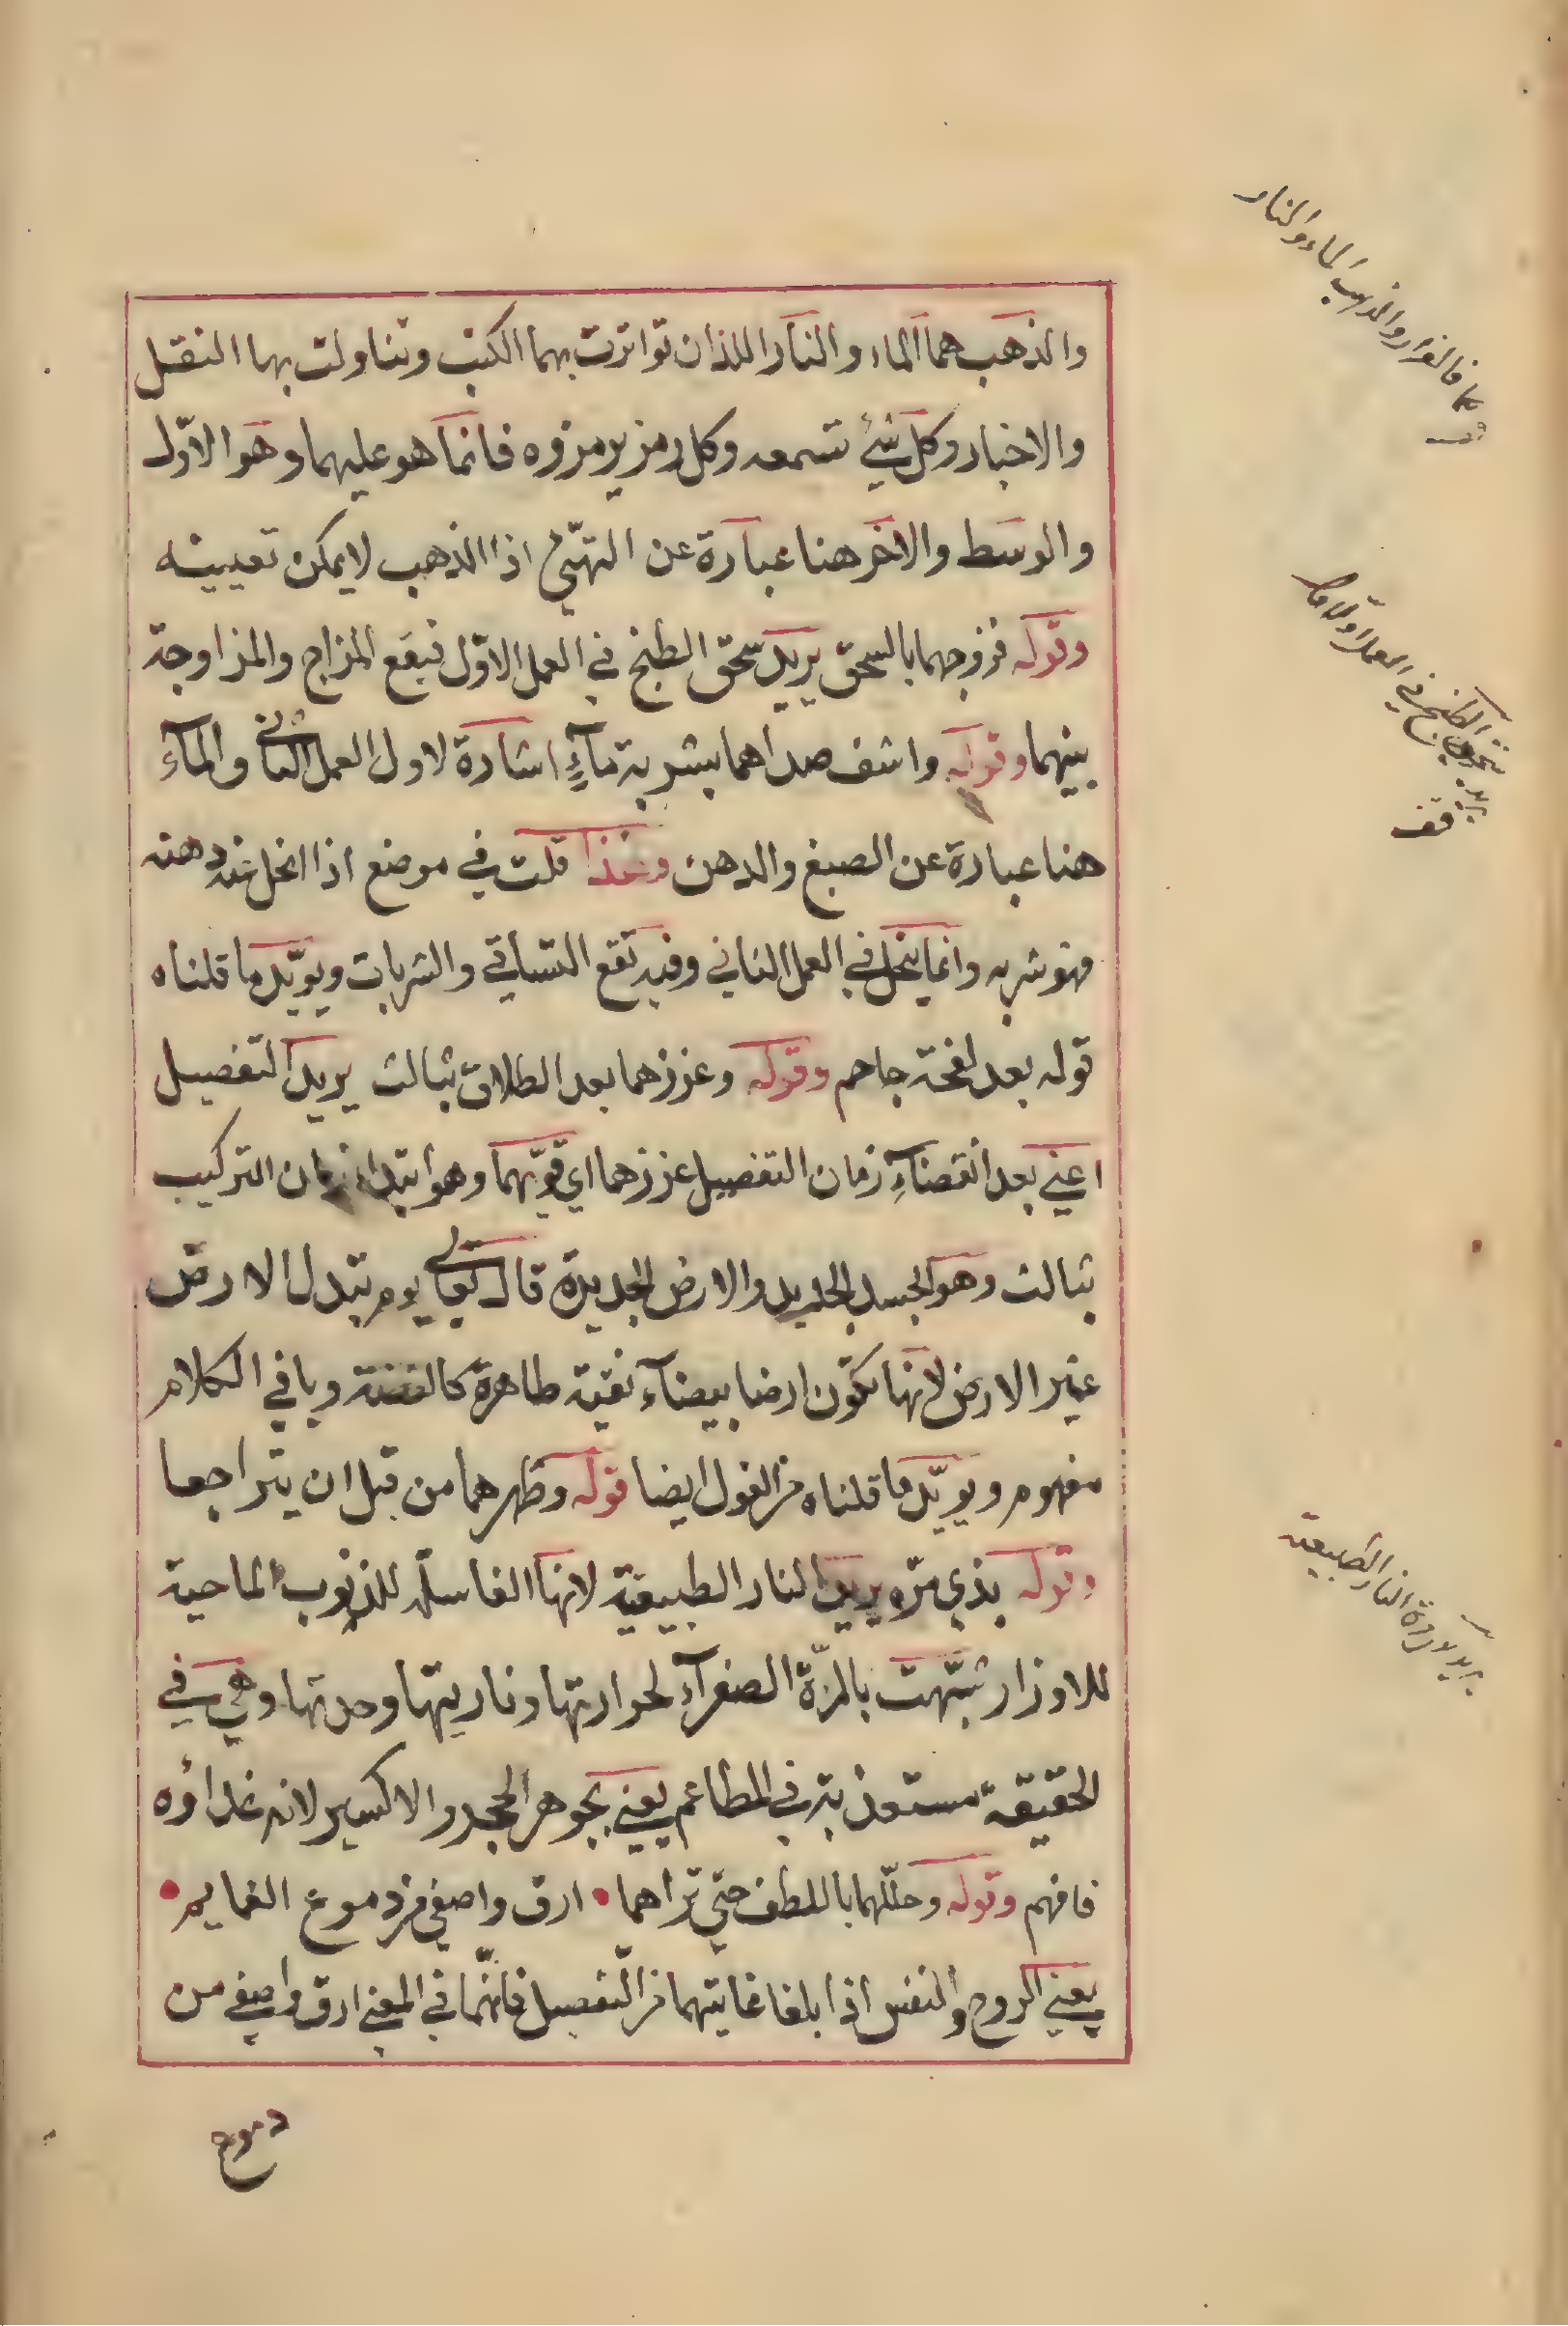 والذهب هما الماء والنار اللذان تواترت بهما الكتب وتناولت بها النقل
والاخبار وكل شيء تسمعه وكل رمز يرمزوه فانما هو عليهما وهو الاول
والوسط والاخر هنا عبارة عن التهيّئ اذا الذهب لا يمكن تعيينه
وقوله فزوجهما بالسحق يريد سحق الطبخ في العمل الاوّل فيقع المزاج والمزاوجة
بينهما وقوله واشف صداهما بشربة مآءٍ اشارة لاول العمل الثاني والمآء
هنا عبارة عن الصبغ والدهن قلت في موضع اذا انحل دهنه
فهو شربه وانما ينحل في العمل الثاني وفيه تقع التساقي والشربات ويويّد ما قلناه
قوله بعد لفحة جاحم وقوله وعززهما بعد الطلاق بثالث يريد التفصيل
اعني بعد انقضآءِ زمان التفصيل عززهما اي قوّهما وهو ابتداء زمان التركيب
بثالث وهو الجسد الجديد والارض الجديدة قال تعالى يوم تبدل الارض
غير الارض لانها تكون ارضا بيضآء نقية طاهرة كالفضة وباقي الكلام
مفهوم ويويّد ما قلناه من القول ايضا قوله وطهرهما من قبل ان يتراجعا
وقوله بذي مرّه يريد النار الطبيعية لانها الغاسلة للذنوب الماحية
للاوزار شبّهت بالمرّة الصفرآء لحرارتها وناريتها وحدتها وهي في
الحقيقة مستعذبة في المطاعم يعني بجوهر الحجر والاكسير لانه غذاؤه
فافهم وقوله وحلّلهما باللطف حتي تراهما • ارق واصفي من دموع الغمايم •
يعني الروح والنفس اذا بلغا غايتهما من التفصيل فانّهما في المعني ارق واصفي من
دموع
فالفرار والذهب الماء والنار
الطبخ في العمل الاول
قف
النار الطبيعية